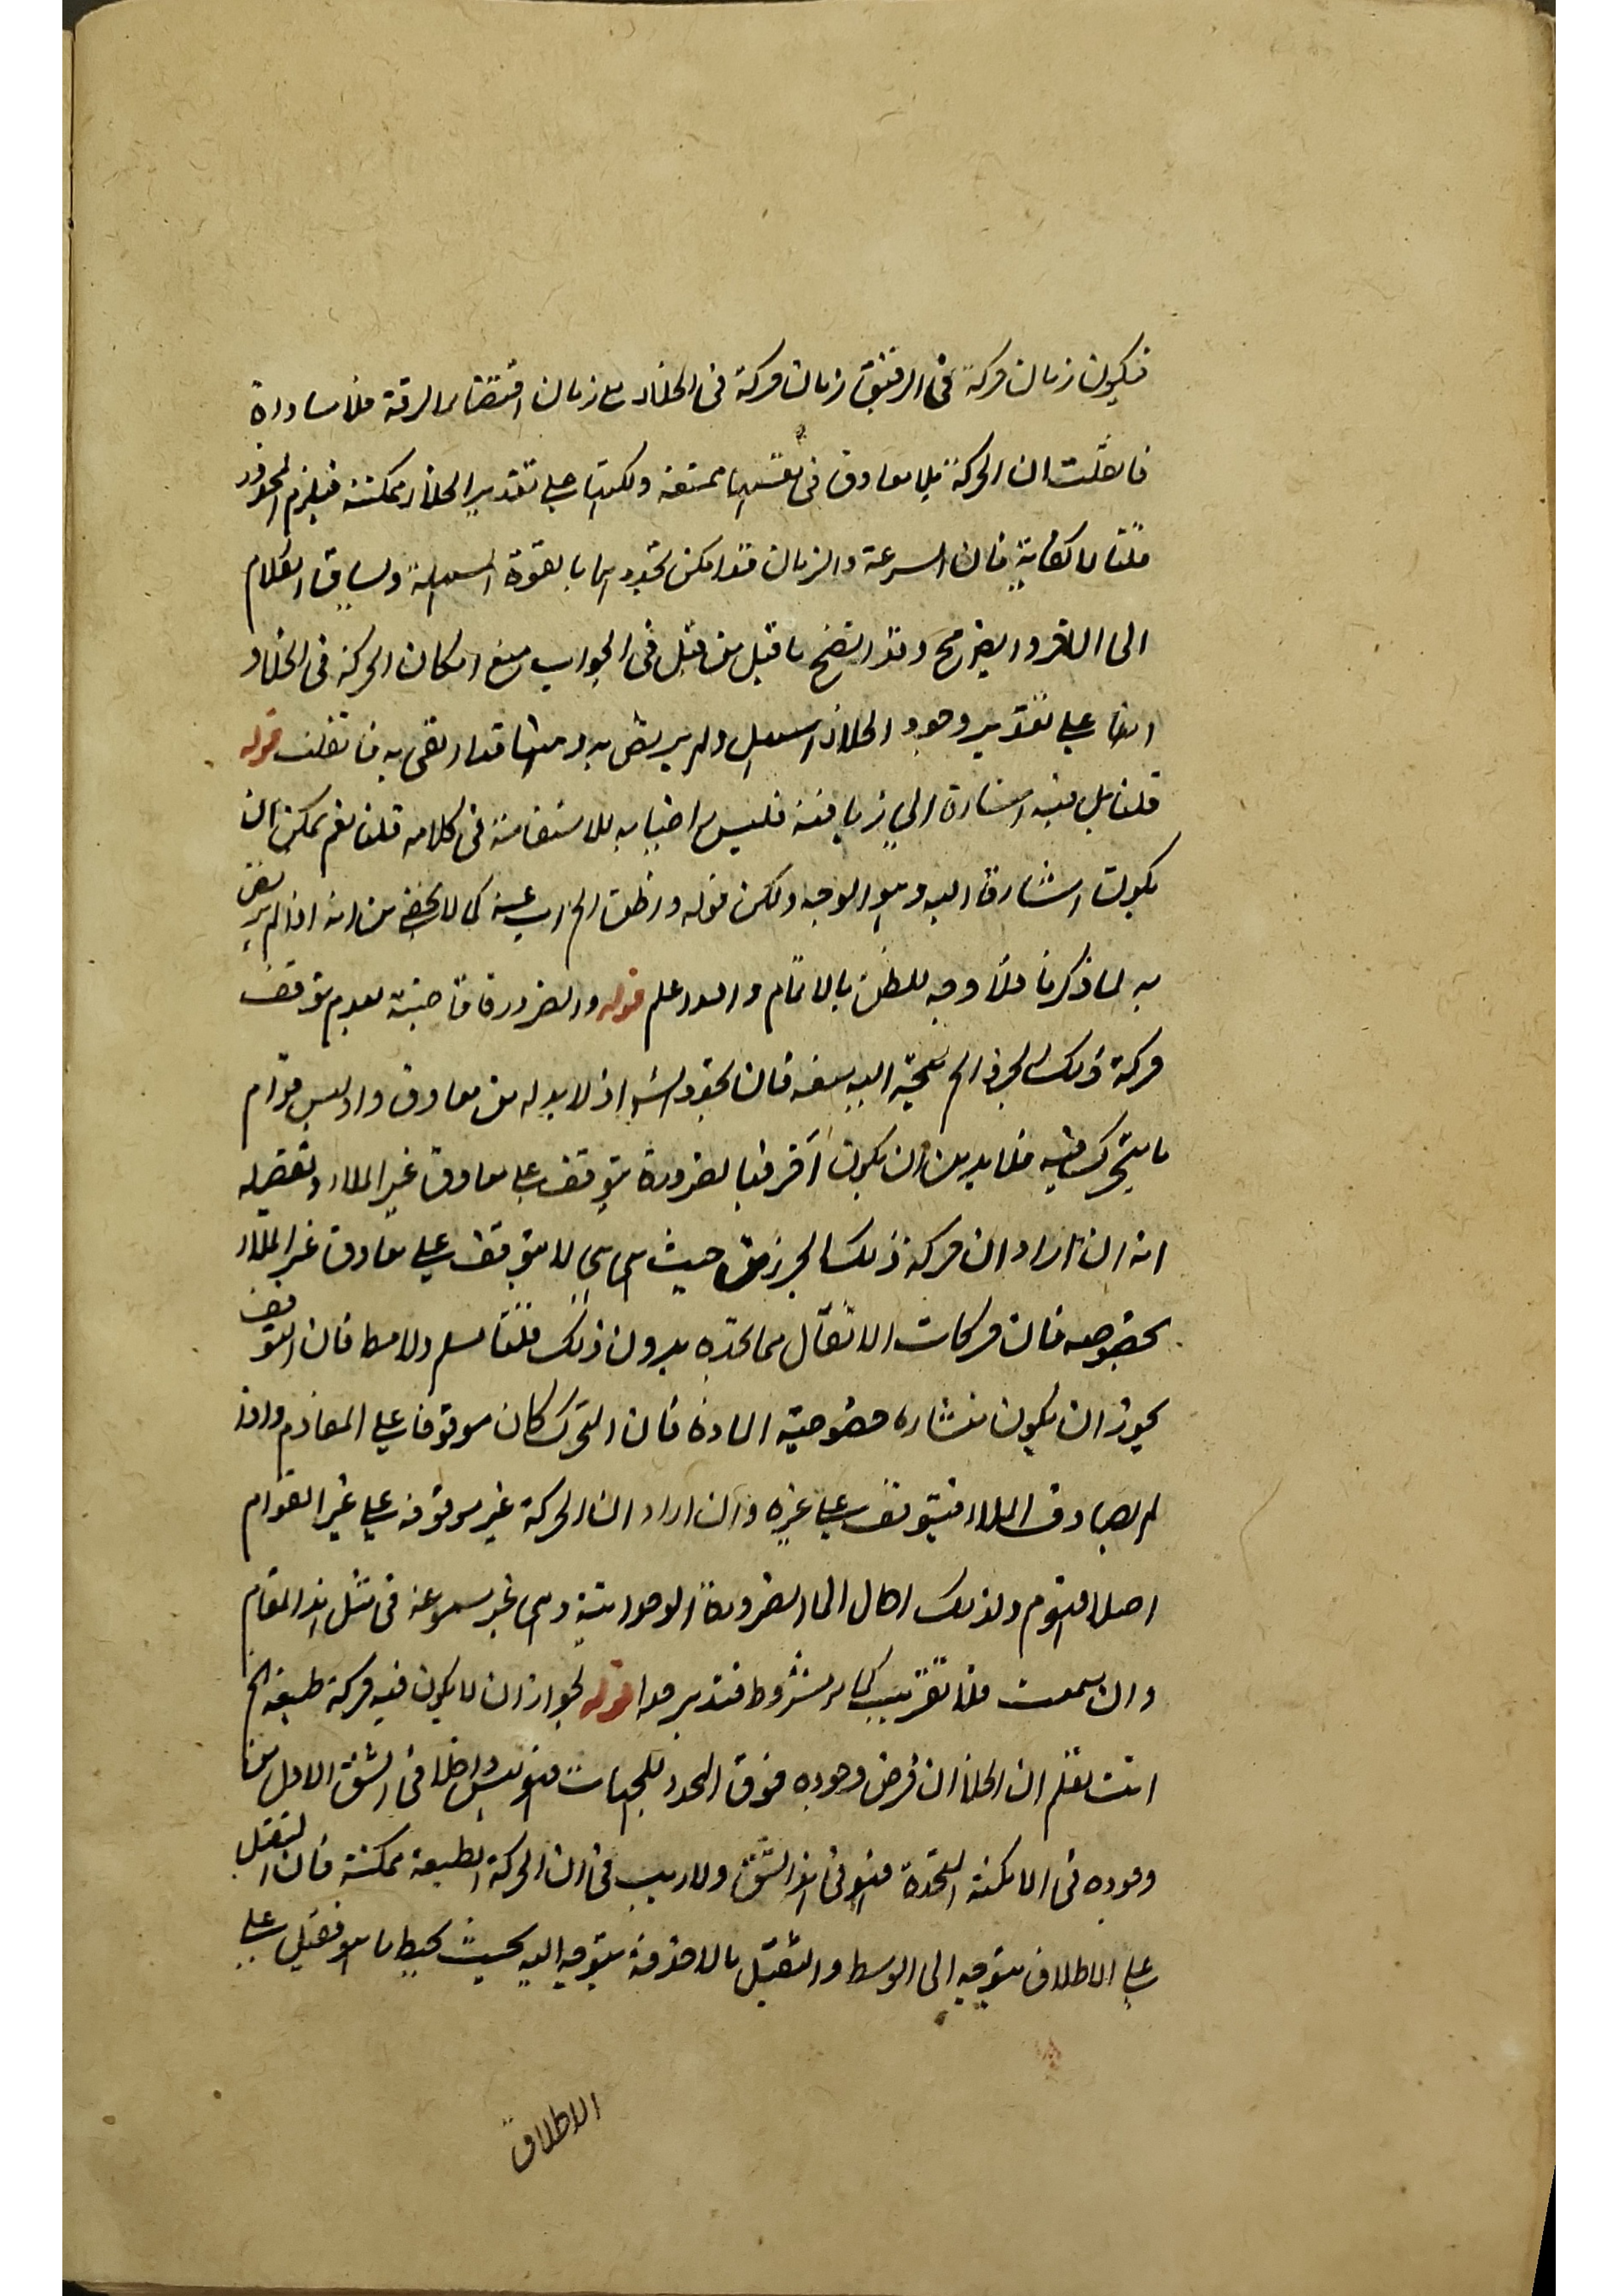 فيكون زمان حركة فى الرقيق زمان حركة فى الخلاء مع زمان اقتضاء الرقة فلا مساواة
فان قلت ان الحركة بلا معاوق فى نفسها ممتنعة ولكنها على تقدير الخلاء ممكنة فيلزم المحذور
قلنا لا كفاية فان السرعة والزمان قد امكن تحديدهما بالقوة وبساق الكلام
الى الآخر وقد اتضح ما قيل من قبل فى الجواب منع امكان الحركة فى الخلاء و
ايضا على تقدير وجود الخلاء ولم يرتض به وههنا قد ارتضى به فانقلت قوله
قلنا بل فيه اشارة الى زيافته فليس اختيار به للاستقامة فى كلامه قلنا نعم يمكن ان
يكون اشارة اليه وهو الوجه ولكن قوله واظن الخ اب عنه كما لا يخفى من انه اذا لم يرتض
به لما ذكرنا فلا وجه للظن بالاتمام والله اعلم قوله والضرورة قاضية بعدم توقف
حركة ذلك الجزء الخ يتجه اليه منعه فان تحقق اذ لا بد له من معاوق واذ ليس قوام
ما يتحرك فيه فلا بد من ان يكون آخر فبالضرورة يتوقف على معاوق غير الملاء وتفصيله
انه ان اراد ان حركة ذلك الجزء من حيث هى هى لا يتوقف على معاوق غير الملاء
بخصوصه فان حركات الاثقال متحققة بدون ذلك قلنا مسلم ولا فان التوقف
يجوز ان يكون منشاره خصوصية المادة فان التحرك كان موقوفا على المقاوم واذا
لم يصادف الملاء فيتوقف على غيره وان اراد ان الحركة غير موقوفة على غير القوام
اصلا فهو م ولذلك احال الى الضرورة الوجدانية وهى غير مسموعة فى مثل هذا المقام
وان سمعت فلا تقريب كما مر مشروطا فتدبر قوله لجواز ان لا يكون فيه حركة طبيعية الخ
انت تعلم ان الخلاء ان فرض وجوده فوق المحدد للجهات فهو ليس داخلا فى الشق الاول من
وجوده فى الامكنة فهو فى هذا الشق ولا ريب فى ان الحركة الطبيعية ممكنة فان الثقيل
على الاطلاق يتوجه الى الوسط والثقيل بالاضافة يتوجه اليه بحيث يحيط بما هو ثقيل على
الاطلاق